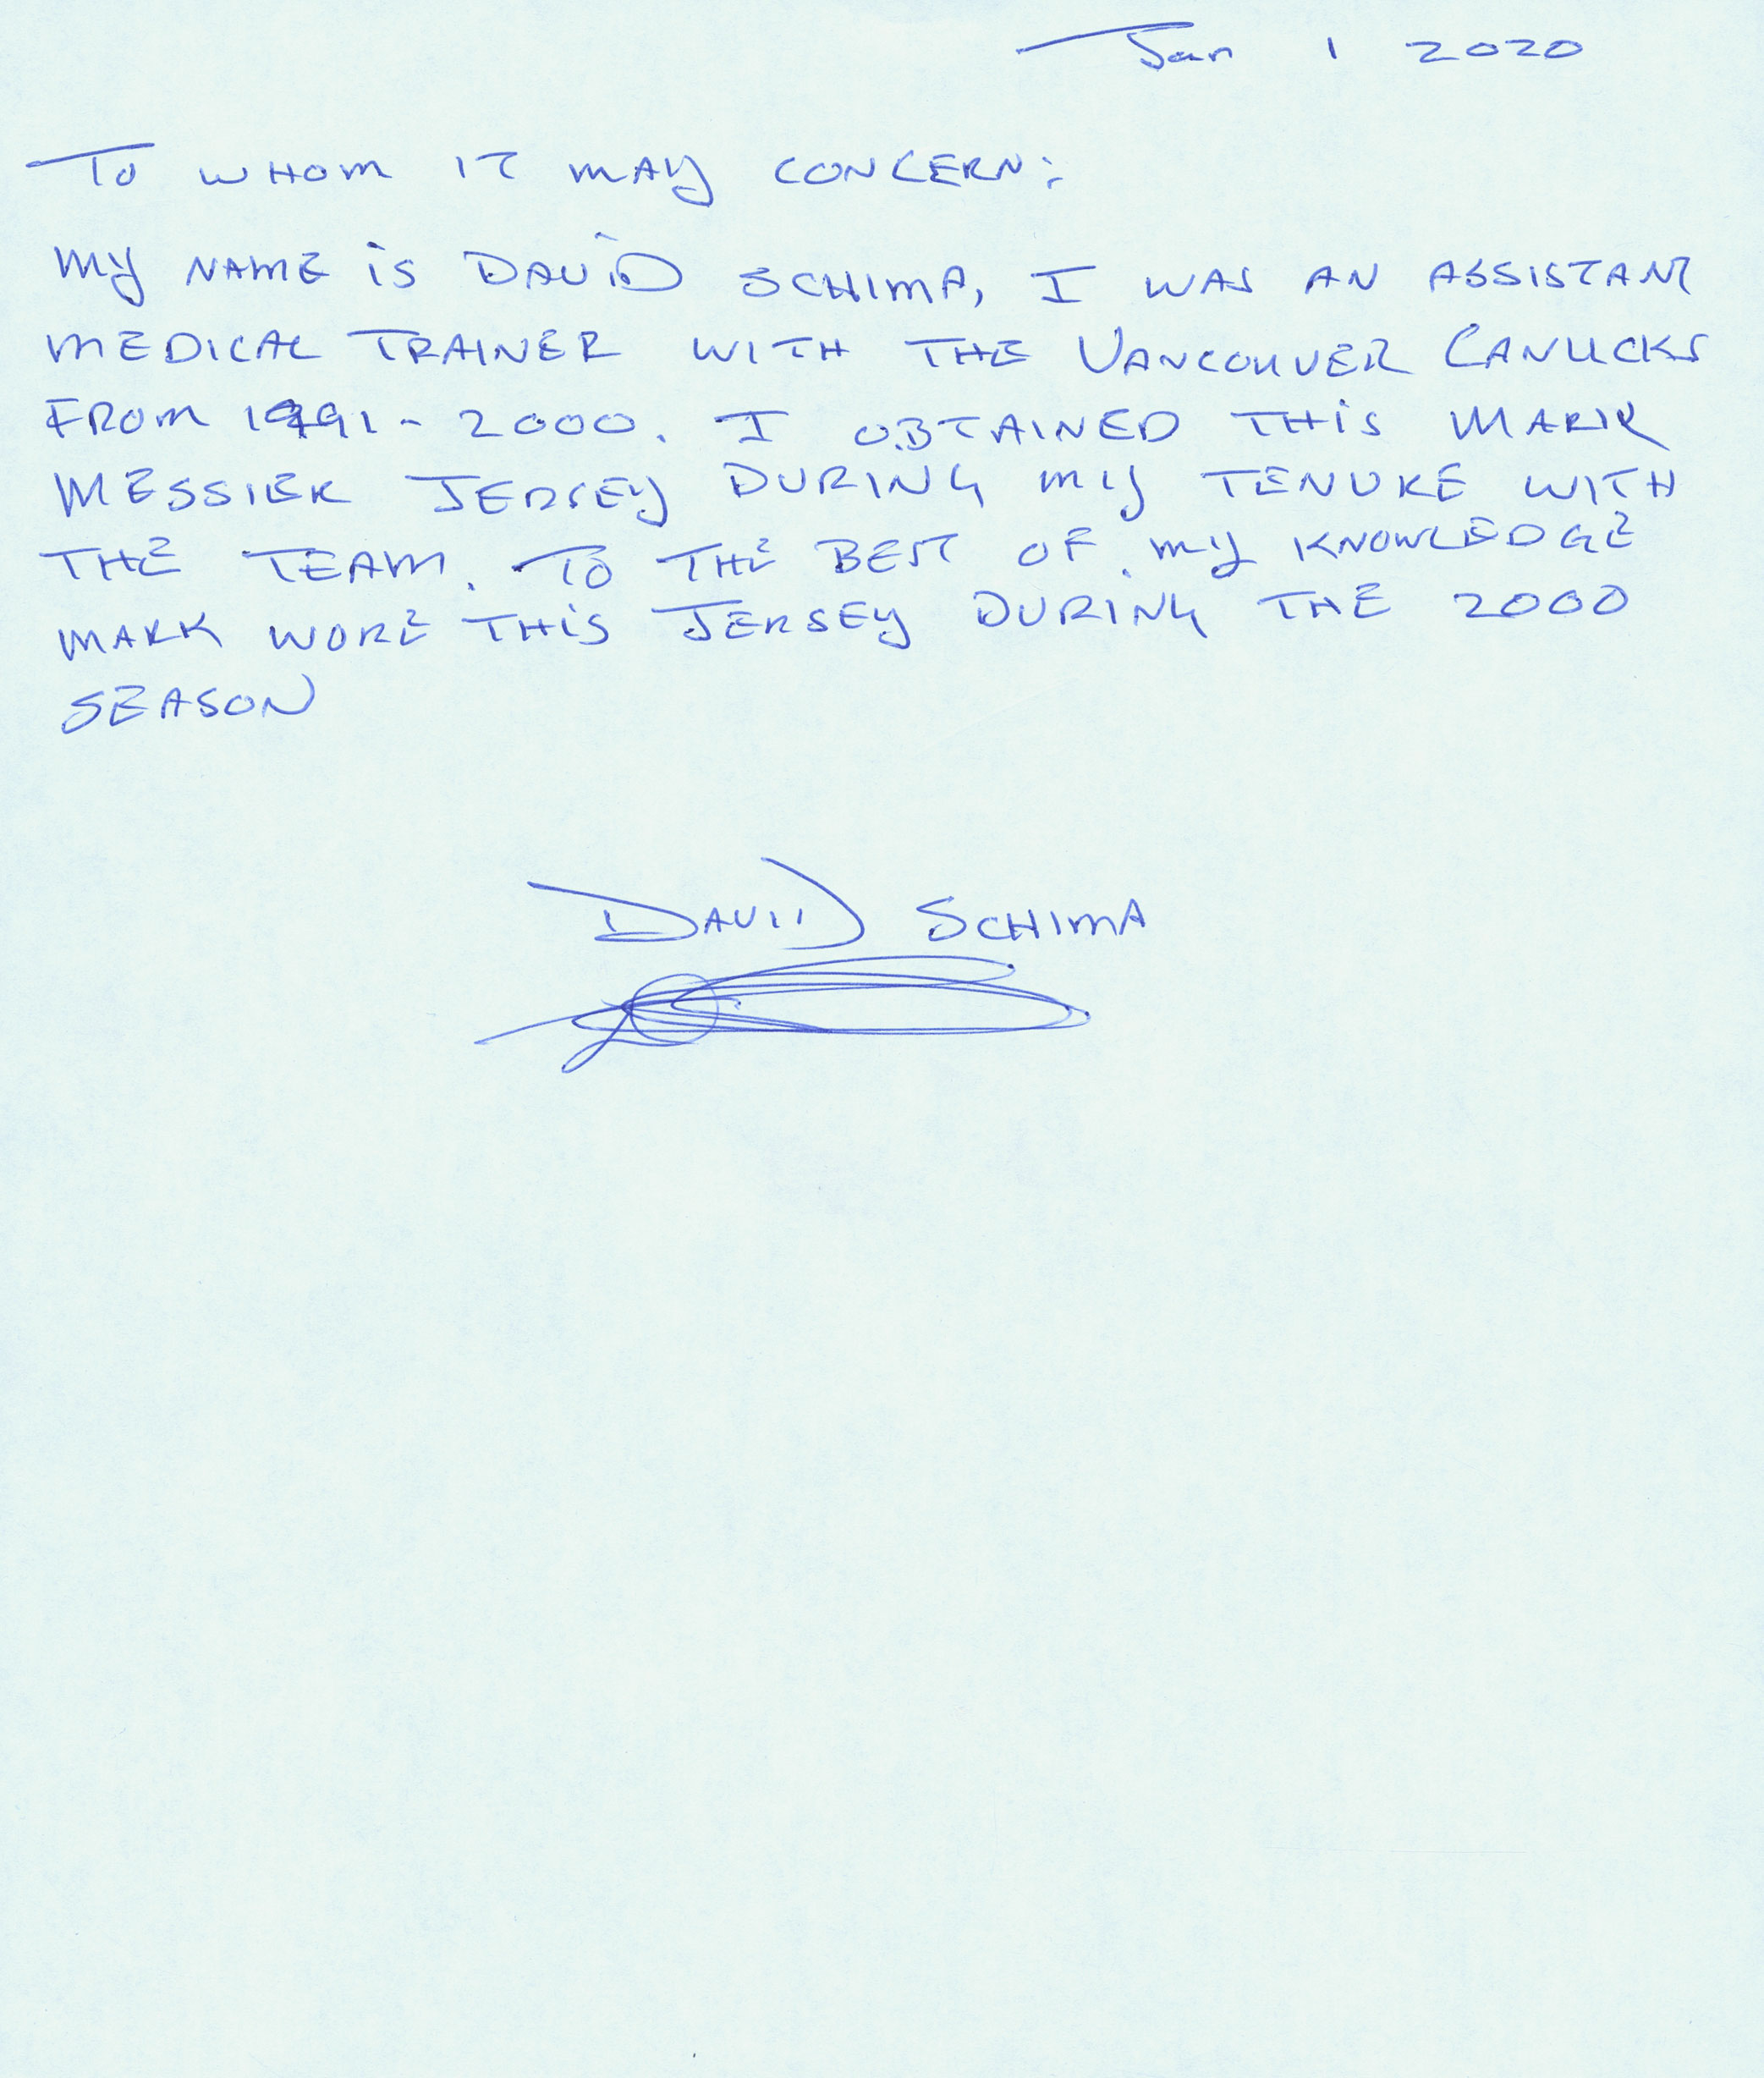 Jan 1 2020
TO WHOM IT MAY CONCERN:
MY NAME IS DAVID SCHIMA, I WAS AN ASSISTANT
MEDICAL TRAINER WITH THE VANCOUVER CANUCKS
FROM 1991 - 2000. I OBTAINED THIS MARK
MESSIER JERSEY DURING MY TENURE WITH
THE TEAM. TO THE BEST OF MY KNOWLEDGE
MARK WORE THIS JERSEY DURING THE 2000
SEASON
DAVID SCHIMA